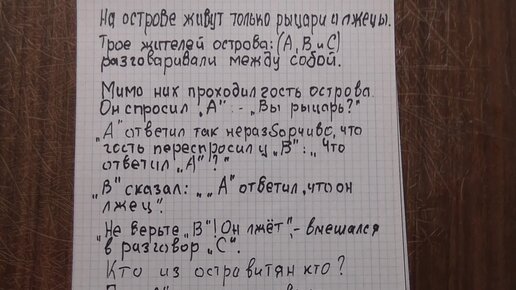 На острове живут только рыцари и лжецы.
Трое жителей острова: (А, В и С)
разговаривали между собой.
Мимо них проходил гость острова.
Он спросил „А": - „Вы рыцарь?"
„А" ответил так неразборчиво, что
гость переспросил у „В": „Что
ответил „А"?"
„В" сказал: „„А" ответил, что он
лжец".
„Не верьте „В"! Он лжёт", - вмешался
в разговор „С".
Кто из островитян кто?